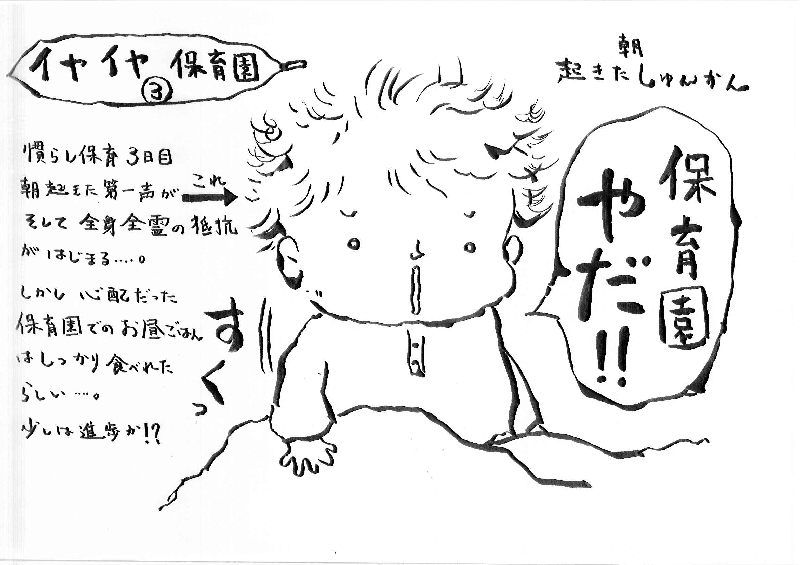 イヤイヤ保育園
③
朝
起きたしゅんかん
慣らし保育3日目
朝起きた第一声が
これ
そして全身全霊の抵抗
がはじまる....。
しかし心配だった
保育園でのお昼ごはん
はしっかり食べれた
らしい....。
少しは進歩か!?
すくっ
保育園
やだ!!